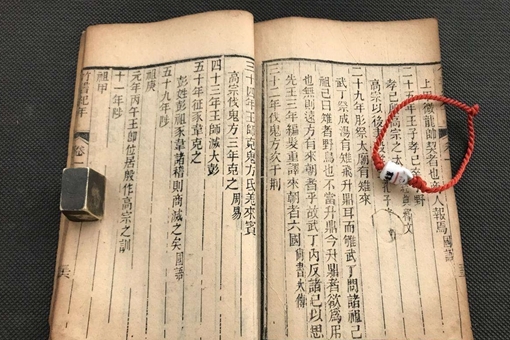 上甲微能帥契者也
人報焉 國語
二十五年王子孝己
野
孝己
高宗之
高宗以後妻
二十九年肜祭太廟有雉來
武丁祭成湯有雉飛升鼎耳而雊武丁問諸祖己
祖己曰雉者野鳥也不當升鼎今升鼎者欲為用
也無則遠方有來朝者乎故武丁內反諸己以思
先王三年編髮重譯來朝者六國 尚書大傳
三十二年伐鬼方次于荊
三十四年王師克鬼方氐羌來賓
高宗伐鬼方三年克之 周易
四十三年王師滅大彭
五十年征豕韋克之
彭姓彭祖豕韋諸稽則商滅之矣 國語
五十九年陟
祖庚
元年丙午王即位居殷作高宗之訓
十一年陟
祖甲
竹書紀年 卷